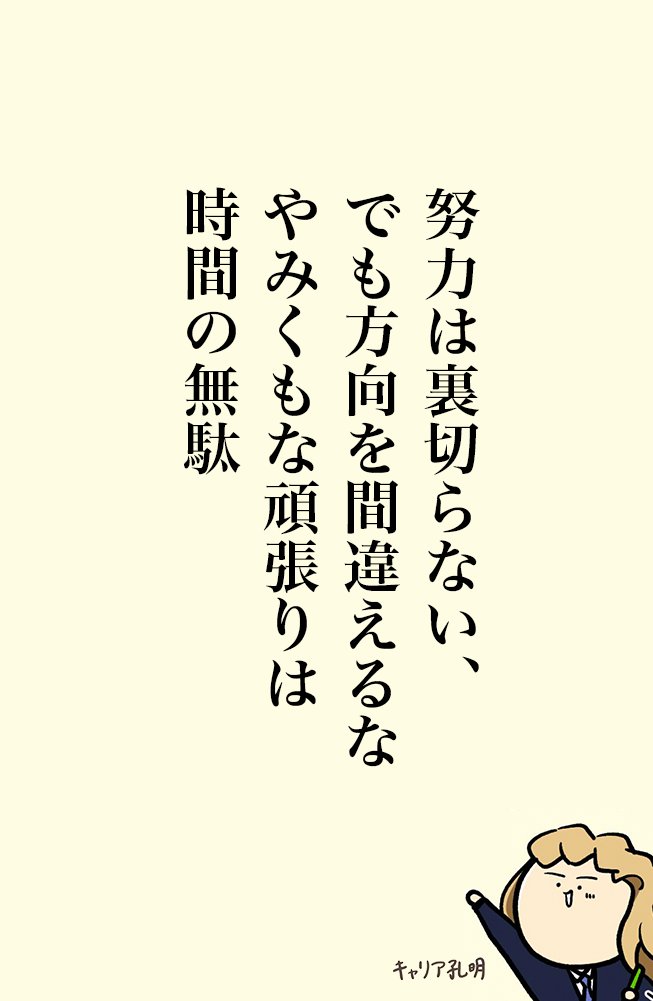 努力は裏切らない、
でも方向を間違えるな
やみくもな頑張りは
時間の無駄
キャリア孔明